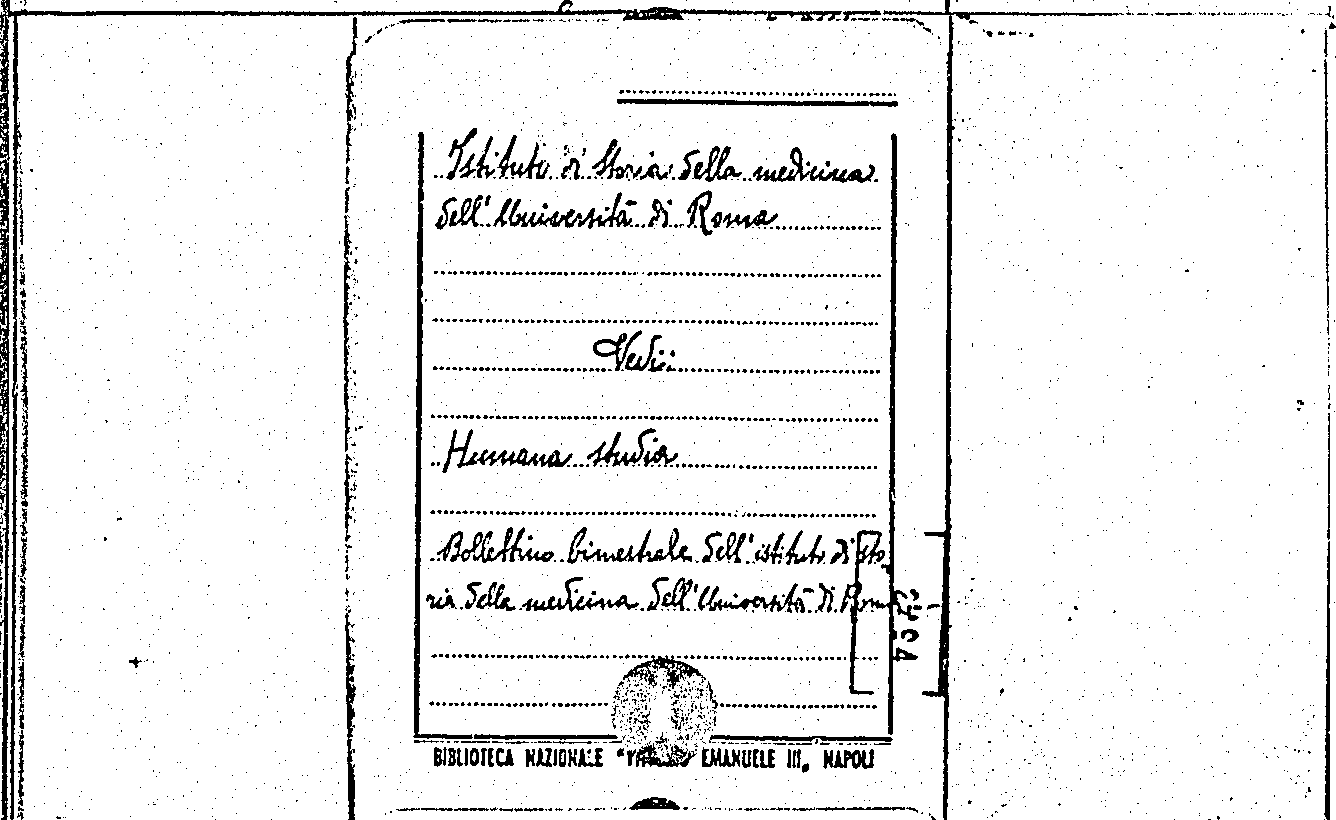 Istituto di Storia della medicina
dell'Università di Roma
Vedi:
Humana studia
Bollettino bimestrale dell'istituto di sto
ria della medicina dell'Università di Roma
BIBLIOTECA NAZIONALE " EMANUELE III, NAPOLI